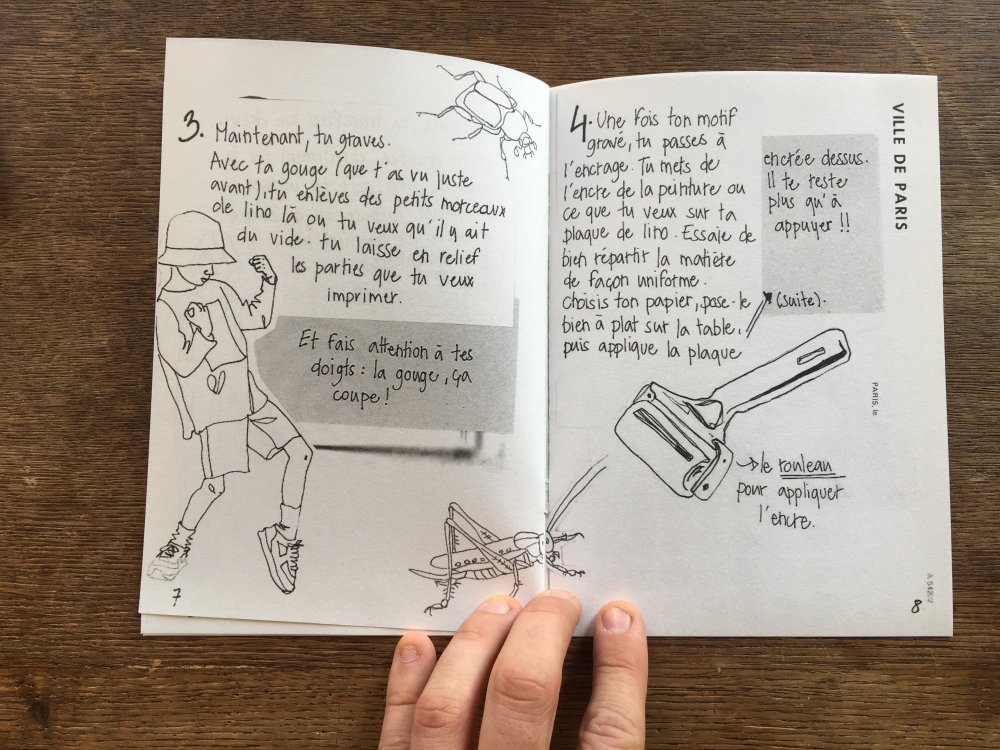 3. Maintenant, tu graves.
Avec ta gouge (que t'as vu juste
avant), tu enlèves des petits morceaux
de lino là où tu veux qu'il y ait
du vide. tu laisse en relief
les parties que tu veux
imprimer.
Et fais attention à tes
doigts : la gouge, ça
coupe !
7
4. Une fois ton motif
gravé, tu passes à
l'encrage. Tu mets de
l'encre de la peinture ou
ce que tu veux sur ta
plaque de lino. Essaie de
bien répartir la matière
de façon uniforme.
Choisis ton papier, pose-le
bien à plat sur la table,
puis applique la plaque
(suite).
encrée dessus.
Il te reste
plus qu'à
appuyer !!
le rouleau
pour appliquer
l'encre.
VILLE DE PARIS
PARIS, le
8